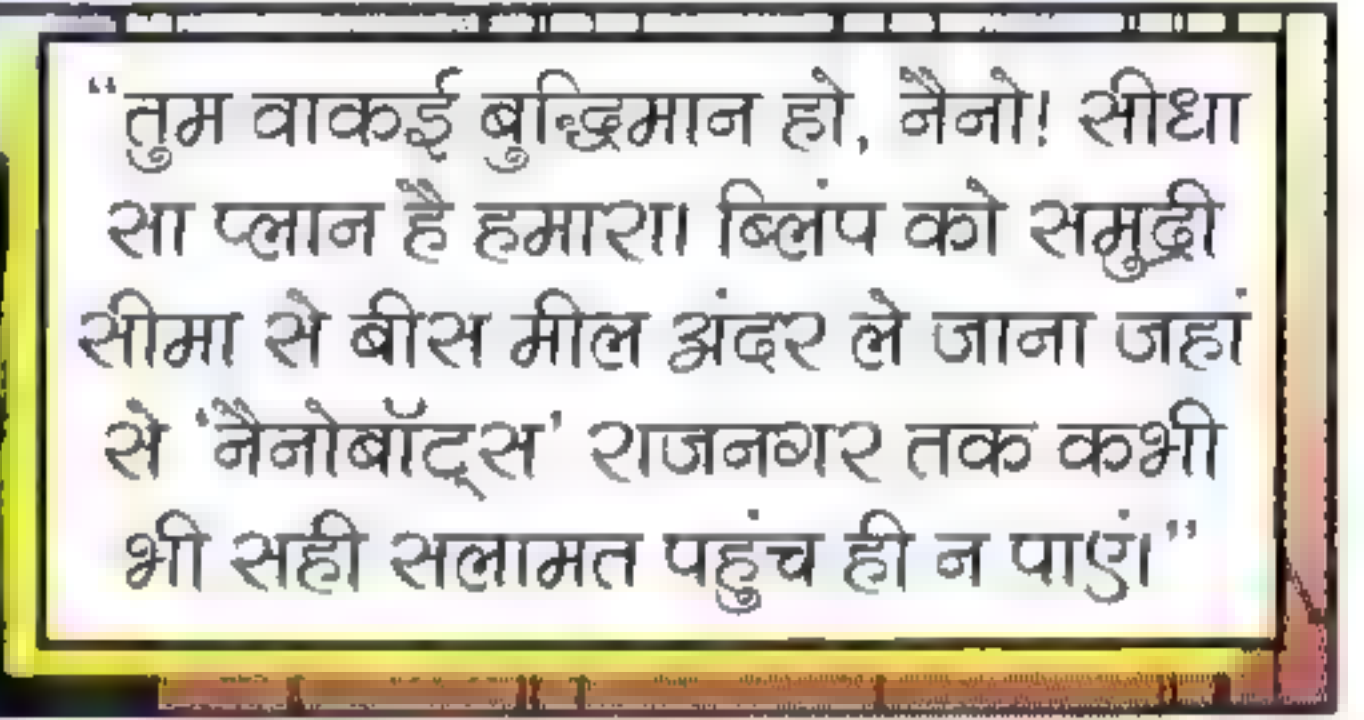 “तुम वाकई बुद्धिमान हो, नैनो! सीधा
सा प्लान है हमारा। ब्लिंप को समुद्री
सीमा से बीस मील अंदर ले जाना जहां
से ‘नैनोबॉट्स’ राजनगर तक कभी
भी सही सलामत पहुंच ही न पाएं।”